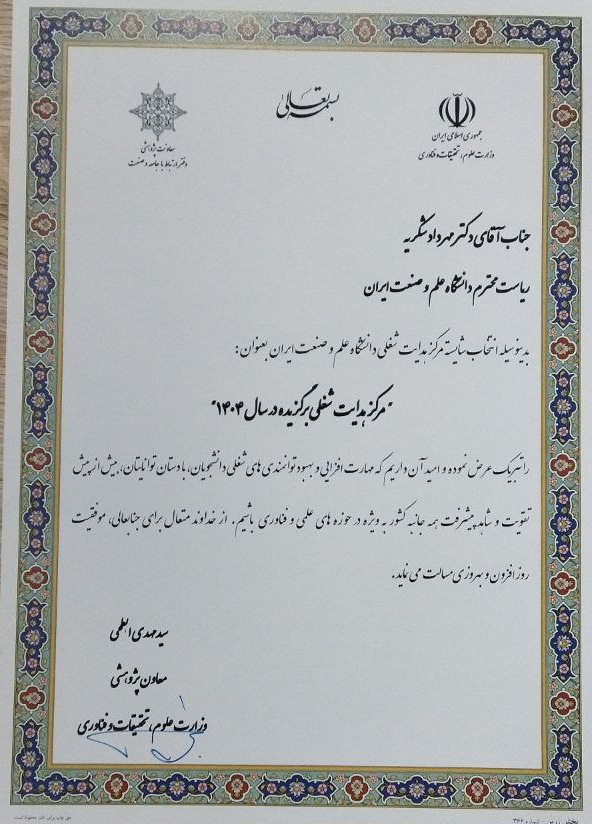 بسمه تعالی
جمهوری اسلامی ایران
وزارت علوم، تحقیقات و فناوری
معاونت پژوهشی
دفتر ارتباط با جامعه و صنعت
جناب آقای دکتر مهرداد شکریه
ریاست محترم دانشگاه علم و صنعت ایران
بدینوسیله انتخاب شایسته مرکز هدایت شغلی دانشگاه علم و صنعت ایران بعنوان:
"مرکز هدایت شغلی برگزیده در سال ۱۴۰۴"
را تبریک عرض نموده و امید آن داریم که مهارت افزایی و بهبود توانمندی های شغلی دانشجویان، با دستان توانایتان، بیش از پیش
تقویت و شاهد پیشرفت همه جانبه کشور به ویژه در حوزه های علمی و فناوری باشیم. از خداوند متعال برای جنابعالی، موفقیت
روز افزون و بهروزی مسالت می نماید.
سید مهدی ابطحی
معاون پژوهشی
وزارت علوم، تحقیقات و فناوری
حق چاپ برای ناشر محفوظ است